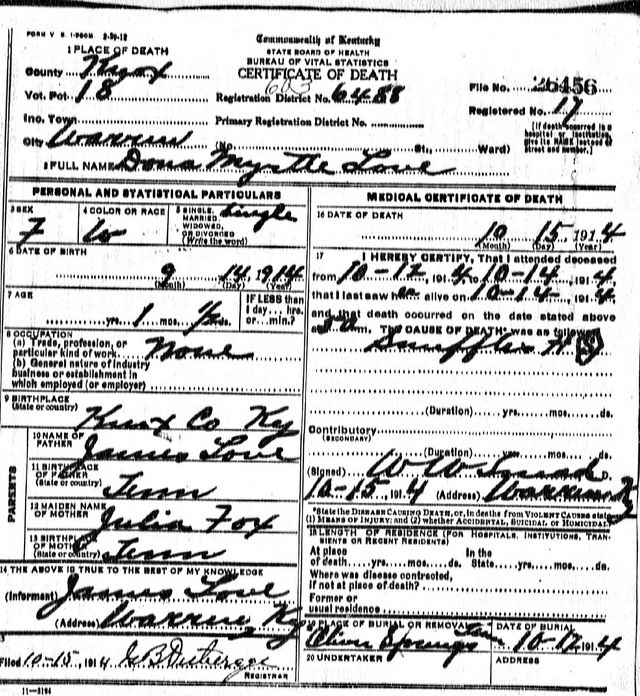 FORM V. S. 1-500M. 2-29-12
Commonwealth of Kentucky
STATE BOARD OF HEALTH
BUREAU OF VITAL STATISTICS
CERTIFICATE OF DEATH
1 PLACE OF DEATH
County Knox
Vot. Pct. 18
603
Registration District No. 6488
File No. 26456
Registered No. 17
Inc. Town
Primary Registration District No.
City Warren (No. St., Ward)
[If death occurred in a hospital or institution, give its NAME instead of street and number.]
2 FULL NAME Dona Myrtle Love
PERSONAL AND STATISTICAL PARTICULARS
3 SEX F
4 COLOR OR RACE W
5 SINGLE, MARRIED, WIDOWED, OR DIVORCED (Write the word) Single
6 DATE OF BIRTH
9 14 1914
(Month) (Day) (Year)
7 AGE
yrs. 1 mos. ds.
IF LESS than 1 day... hrs. or...min.?
8 OCCUPATION
(a) Trade, profession, or particular kind of work None
(b) General nature of industry business or establishment in which employed (or employer)
9 BIRTHPLACE
(State or country) Knox Co Ky
PARENTS
10 NAME OF FATHER James Love
11 BIRTHPLACE OF FATHER (State or country) Tenn
12 MAIDEN NAME OF MOTHER Julia Fox
13 BIRTHPLACE OF MOTHER (State or country) Tenn
14 THE ABOVE IS TRUE TO THE BEST OF MY KNOWLEDGE
(Informant) James Love
(Address) Warren Ky
Filed 10-15, 1914
REGISTRAR
11—3194
MEDICAL CERTIFICATE OF DEATH
16 DATE OF DEATH
10 15 1914
(Month) (Day) (Year)
17 I HEREBY CERTIFY, That I attended deceased
from 10-12, 1914, to 10-14, 1914,
that I last saw h alive on 10-14, 1914,
and that death occurred on the date stated above
m. THE CAUSE OF DEATH was as follows
(Duration) yrs. mos. ds.
Contributory
(SECONDARY)
(Duration) yrs. mos. ds.
(Signed) W W D.
10-15, 1914 (Address) Warren Ky
*State the DISEASE CAUSING DEATH, or, in deaths from VIOLENT CAUSES state
(1) MEANS OF INJURY; and (2) whether ACCIDENTAL, SUICIDAL or HOMICIDAL.
18 LENGTH OF RESIDENCE (FOR HOSPITALS, INSTITUTIONS, TRANSIENTS OR RECENT RESIDENTS)
At place of death yrs. mos. ds. In the State yrs. mos. ds.
Where was disease contracted,
If not at place of death?
Former or
usual residence
19 PLACE OF BURIAL OR REMOVAL Oliver Springs Tenn
DATE OF BURIAL 10-17 1914
20 UNDERTAKER
ADDRESS